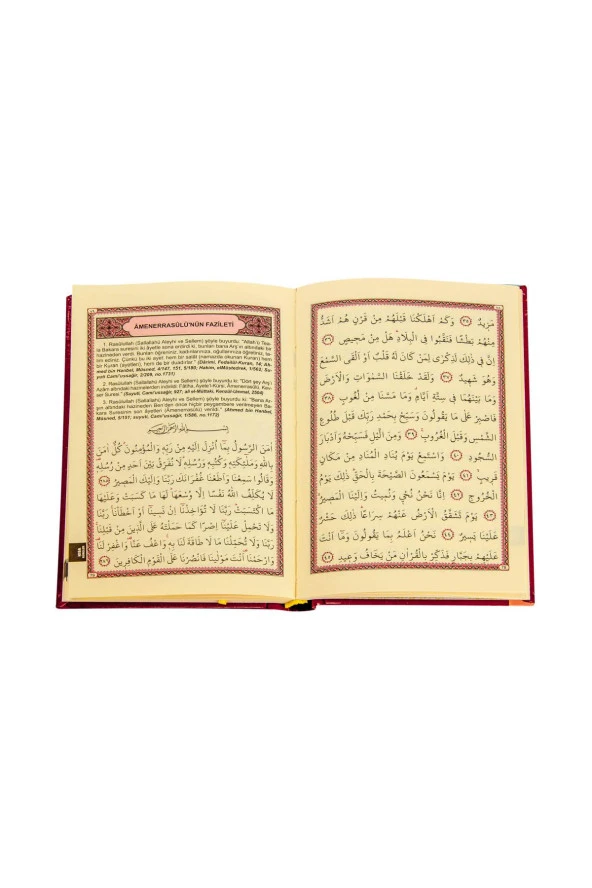 مَزِيدٌ ﴿٣٥﴾ وَكَمْ اَهْلَكْنَا قَبْلَهُمْ مِنْ قَرْنٍ هُمْ اَشَدُّ
مِنْهُمْ بَطْشًا فَنَقَّبُوا فِي الْبِلَادِ هَلْ مِنْ مَحِيصٍ ﴿٣٦﴾
اِنَّ فِي ذٰلِكَ لَذِكْرٰى لِمَنْ كَانَ لَهُ قَلْبٌ اَوْ اَلْقَى السَّمْعَ
وَهُوَ شَهِيدٌ ﴿٣٧﴾ وَلَقَدْ خَلَقْنَا السَّمٰوَاتِ وَالْاَرْضَ
وَمَا بَيْنَهُمَا فِي سِتَّةِ اَيَّامٍ وَمَا مَسَّنَا مِنْ لُغُوبٍ ﴿٣٨﴾
فَاصْبِرْ عَلٰى مَا يَقُولُونَ وَسَبِّحْ بِحَمْدِ رَبِّكَ قَبْلَ طُلُوعِ
الشَّمْسِ وَقَبْلَ الْغُرُوبِ ﴿٣٩﴾ وَمِنَ الَّيْلِ فَسَبِّحْهُ وَاَدْبَارَ
السُّجُودِ ﴿٤٠﴾ وَاسْتَمِعْ يَوْمَ يُنَادِ الْمُنَادِ مِنْ مَكَانٍ
قَرِيبٍ ﴿٤١﴾ يَوْمَ يَسْمَعُونَ الصَّيْحَةَ بِالْحَقِّ ذٰلِكَ يَوْمُ
الْخُرُوجِ ﴿٤٢﴾ اِنَّا نَحْنُ نُحْيِي وَنُمِيتُ وَاِلَيْنَا الْمَصِيرُ
﴿٤٣﴾ يَوْمَ تَشَقَّقُ الْاَرْضُ عَنْهُمْ سِرَاعًا ذٰلِكَ حَشْرٌ
عَلَيْنَا يَسِيرٌ ﴿٤٤﴾ نَحْنُ اَعْلَمُ بِمَا يَقُولُونَ وَمَا اَنْتَ
عَلَيْهِمْ بِجَبَّارٍ فَذَكِّرْ بِالْقُرْاٰنِ مَنْ يَخَافُ وَعِيدِ ﴿٤٥﴾
ÂMENERRASÛLÜ'NÜN FAZİLETİ
1. Rasûlüllah (Sallallahü Aleyhi ve Sellem) şöyle buyurdu: "Allah'ü Teâ-
la Bakara suresini iki âyetle sona erdirdi ki, bunları bana Arş'ın altındaki bir
hazineden verdi. Bunları öğreniniz, kadınlarınıza, oğullarınıza öğretiniz,
Çünkü bu iki âyet hem bir salât (namazda okunan Kuran) hem
bir Kurân (âyetleri), hem de bir duadırlar."
2. Rasûlüllah (Sallallahü Aleyhi ve Sellem) şöyle buyurdu ki: "Dört şey Arş'ı
Âzâm altındaki hazineden indirildi: Fâtiha, Âyete'l-Kürsi, Âmenerrasûlü, Kev-
ser Suresi."
3. Rasûlüllah (Sallallahü Aleyhi ve Sellem) şöyle buyurdu ki: "Bana Ar-
şın altındaki hazineden Ben'den önce hiçbir peygambere verilmeyen Ba-
kara Suresinin son âyetleri (Âmenerrasûlü) verildi." (Ahmed bin Hanbel,
بِسْمِ اللّٰهِ الرَّحْمٰنِ الرَّحِيمِ
اٰمَنَ الرَّسُولُ بِمَا اُنْزِلَ اِلَيْهِ مِنْ رَبِّهِ وَالْمُؤْمِنُونَ كُلٌّ اٰمَنَ
بِاللّٰهِ وَمَلٰئِكَتِهِ وَكُتُبِهِ وَرُسُلِهِ لَا نُفَرِّقُ بَيْنَ اَحَدٍ مِنْ رُسُلِهِ
وَقَالُوا سَمِعْنَا وَاَطَعْنَا غُفْرَانَكَ رَبَّنَا وَاِلَيْكَ الْمَصِيرُ ﴿٢٨٥﴾
لَا يُكَلِّفُ اللّٰهُ نَفْسًا اِلَّا وُسْعَهَا لَهَا مَا كَسَبَتْ وَعَلَيْهَا
مَا اكْتَسَبَتْ رَبَّنَا لَا تُؤَاخِذْنَا اِنْ نَسِينَا اَوْ اَخْطَاْنَا رَبَّنَا
وَلَا تَحْمِلْ عَلَيْنَا اِصْرًا كَمَا حَمَلْتَهُ عَلَى الَّذِينَ مِنْ قَبْلِنَا
رَبَّنَا وَلَا تُحَمِّلْنَا مَا لَا طَاقَةَ لَنَا بِهِ وَاعْفُ عَنَّا وَاغْفِرْ لَنَا
وَارْحَمْنَا اَنْتَ مَوْلٰينَا فَانْصُرْنَا عَلَى الْقَوْمِ الْكَافِرِينَ ﴿٢٨٦﴾